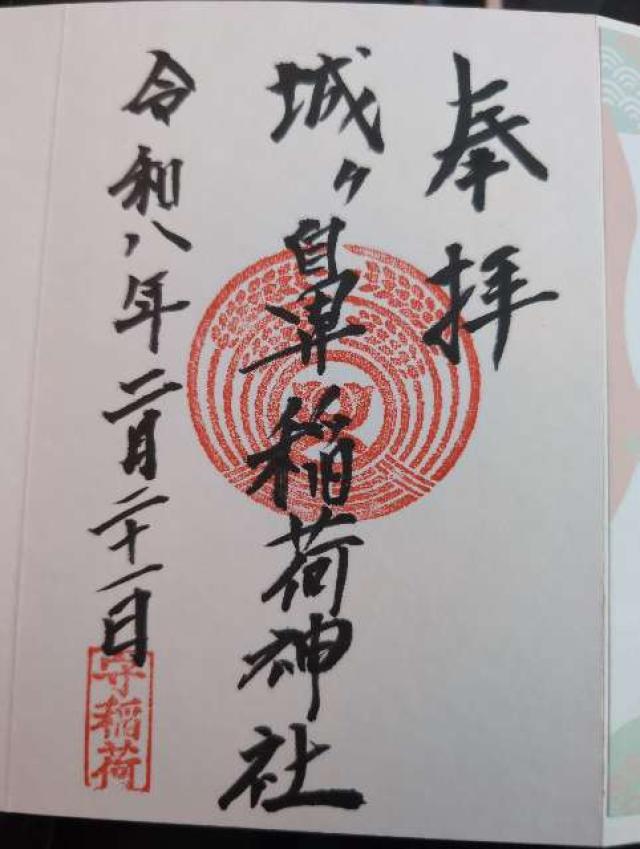 奉拝
城ヶ鼻稲荷神社
令和八年二月二十一日
守稲荷